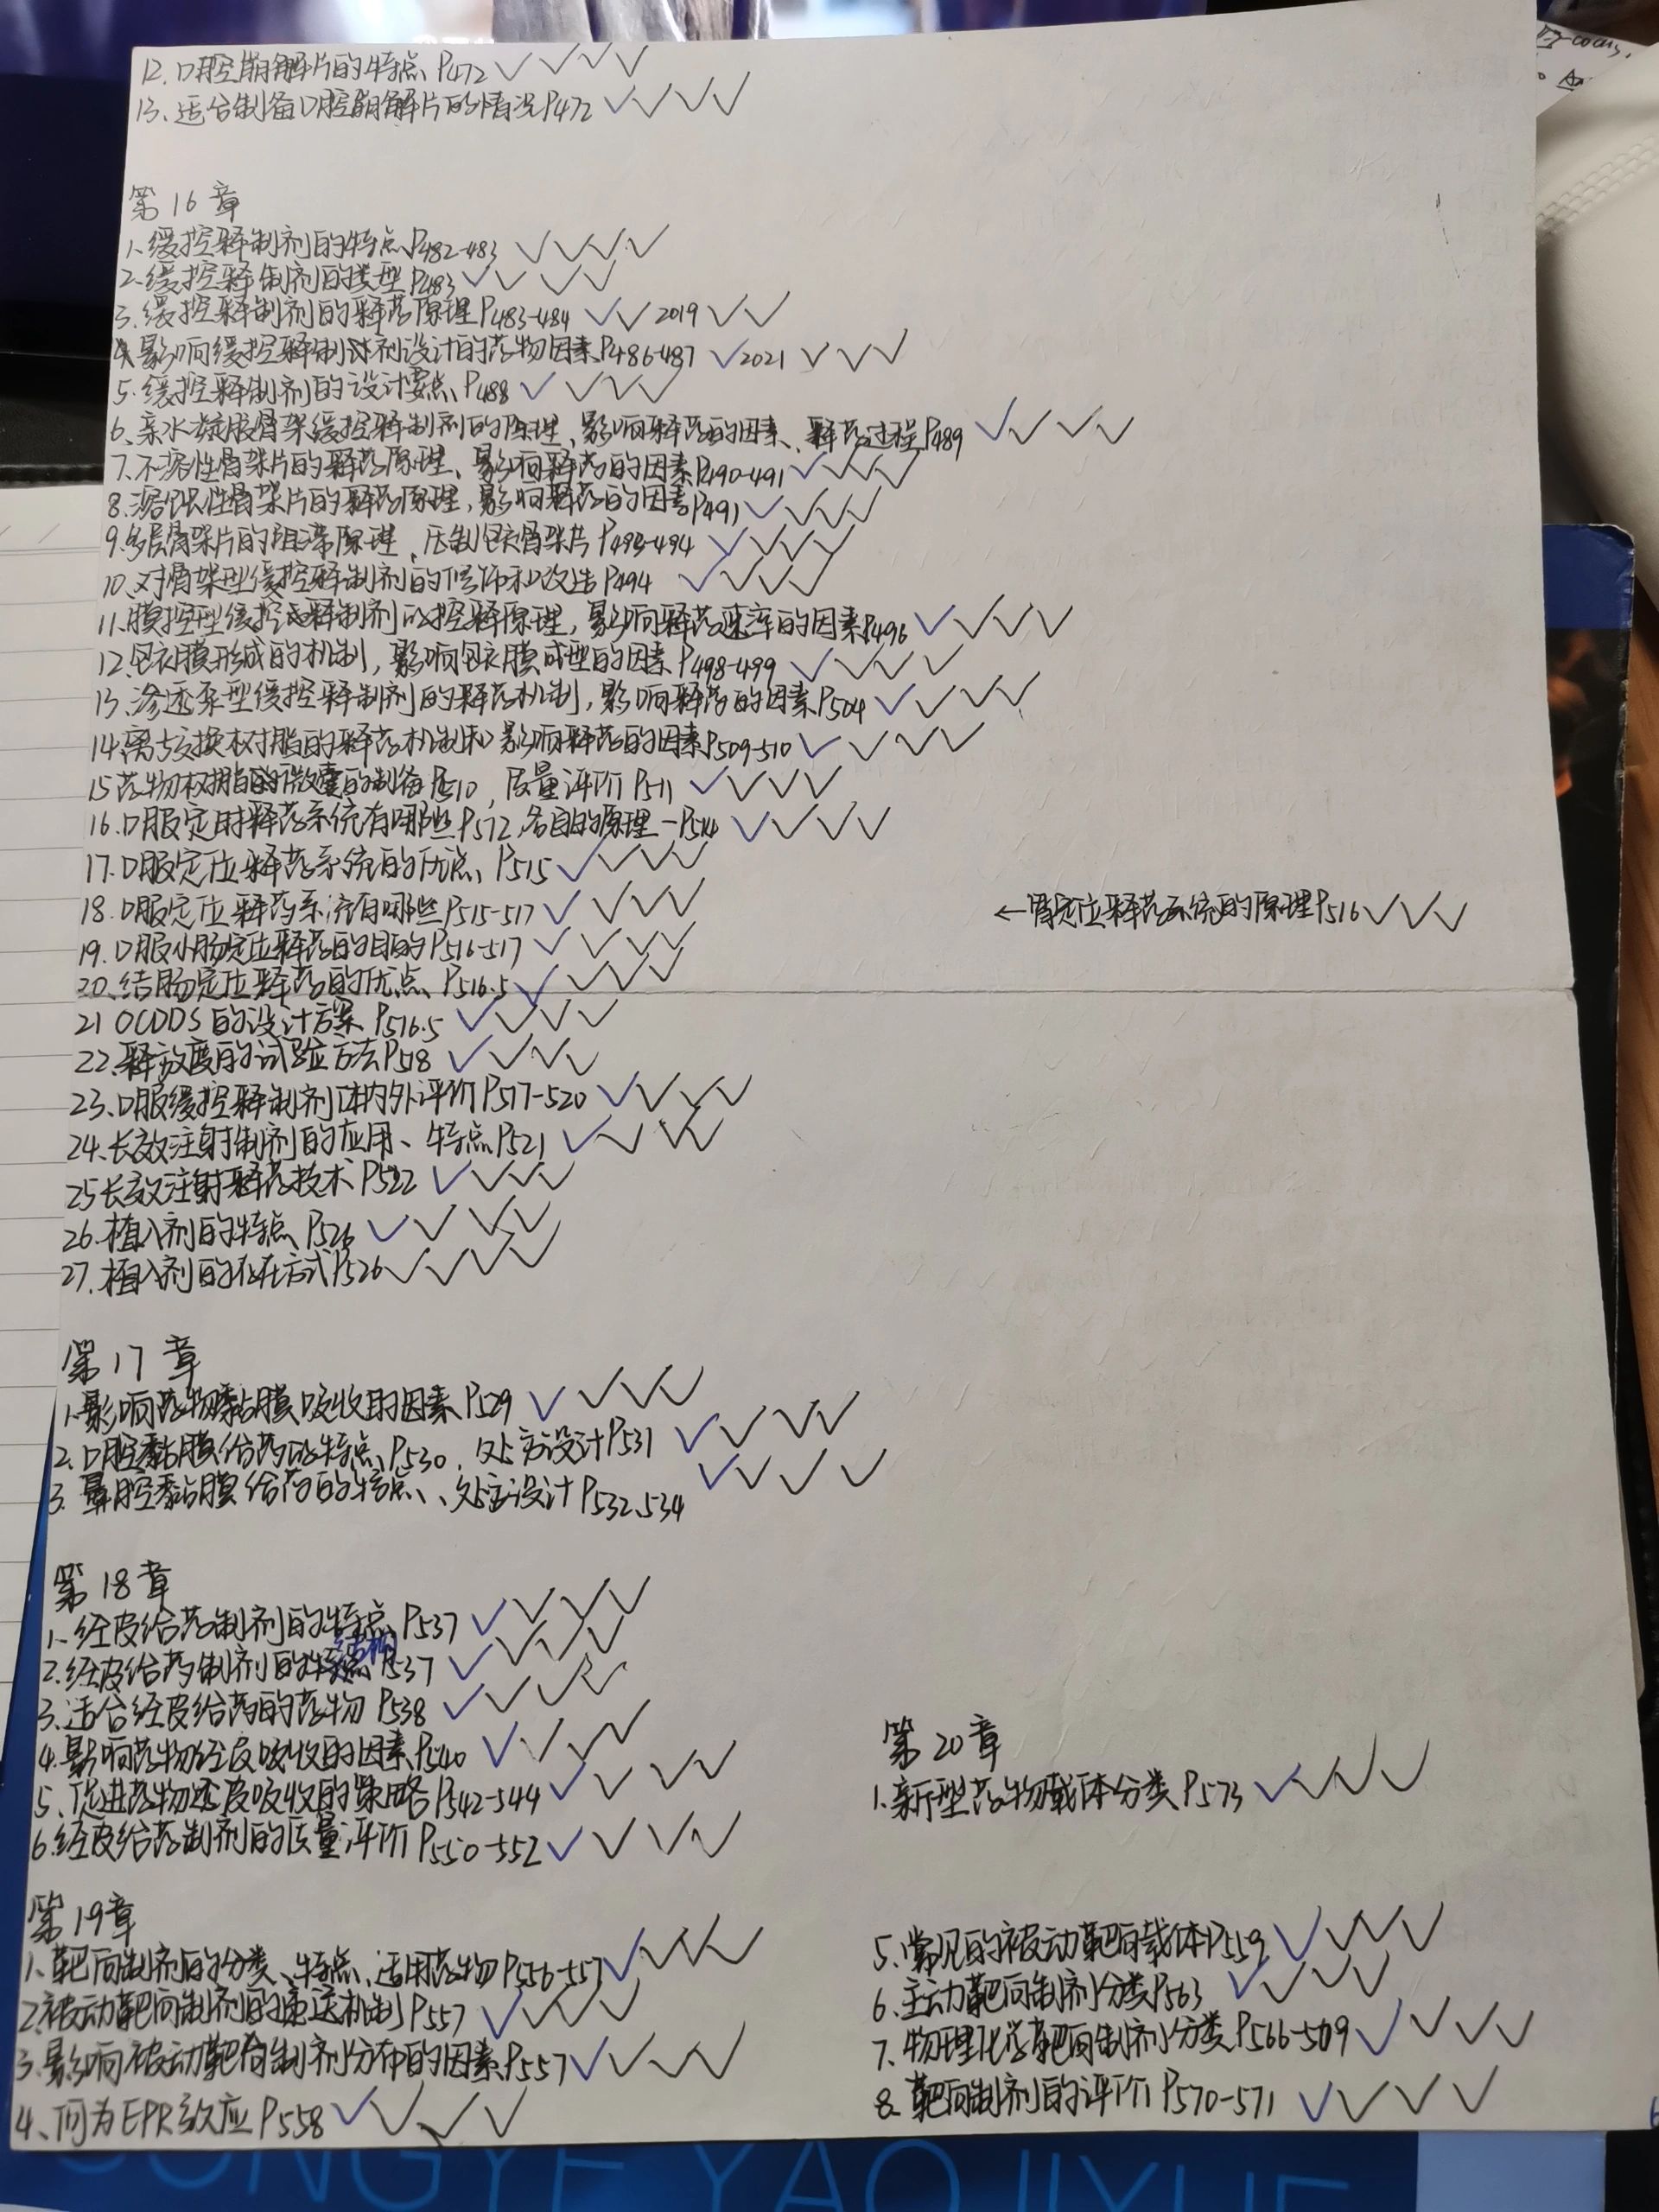 12、口腔崩解片的特点P472 ✓✓✓✓
13、适合制备口腔崩解片的情况P472 ✓✓✓✓
第16章
1、缓控释制剂的特点P482-483 ✓✓✓✓
2、缓控释制剂的类型P483 ✓✓✓✓
3、缓控释制剂的释药原理P483-484 ✓✓2019✓✓
4、影响缓控释制剂设计的药物因素P486-487 ✓2021✓✓✓
5、缓控释制剂的设计要点P488 ✓✓✓✓
6、亲水凝胶骨架缓控释制剂的原理、影响释药的因素、释药过程P489 ✓✓✓✓
7、不溶性骨架片的释药原理、影响释药的因素P490-491 ✓✓✓✓
8、溶蚀性骨架片的释药原理,影响释药的因素P491 ✓✓✓✓
9、多层骨架片的阻滞原理、压制包衣骨架片P493-494 ✓✓✓✓
10、对骨架型缓控释制剂的修饰和改造P494 ✓✓✓✓
11、膜控型缓控释制剂的控释原理,影响释药速率的因素P496 ✓✓✓✓
12、包衣膜形成的机制,影响包衣膜成型的因素P498-499 ✓✓✓✓
13、渗透泵型缓控释制剂的释药机制,影响释药的因素P504 ✓✓✓✓
14、离子交换树脂的释药机制和影响释药的因素P509-510 ✓✓✓✓
15、药物树脂的微囊的制备P510,质量评价P511 ✓✓✓✓
16、口服定时释药系统有哪些P512,各自的原理-P514 ✓✓✓✓
17、口服定位释药系统的优点P515 ✓✓✓✓
18、口服定位释药系统有哪些P515-517 ✓✓✓✓ ←胃定位释药系统的原理P516✓✓✓
19、口服小肠定位释药的目的P516-517 ✓✓✓✓
20、结肠定位释药的优点P516.5 ✓✓✓✓
21 OCDDS的设计方案P516.5 ✓✓✓✓
22、释放度的试验方法P518 ✓✓✓✓
23、口服缓控释制剂体内外评价P517-520 ✓✓✓✓
24、长效注射制剂的应用、特点P521 ✓✓✓✓
25长效注射释药技术P522 ✓✓✓✓
26、植入剂的特点P526 ✓✓✓✓
27、植入剂的存在方式P526✓✓✓✓
第17章
1、影响药物黏膜吸收的因素P529 ✓✓✓✓
2、口腔黏膜给药的特点P530、处方设计P531 ✓✓✓✓
3、鼻腔黏膜给药的特点、处方设计P532、534 ✓✓✓✓
第18章
1、经皮给药制剂的特点P537 ✓✓✓✓
2、经皮给药制剂的结构P537 ✓✓✓✓
3、适合经皮给药的药物P538 ✓✓✓✓
4、影响药物经皮吸收的因素P540 ✓✓✓✓
5、促进药物透皮吸收的策略P542-544 ✓✓✓✓
6、经皮给药制剂的质量评价P550-552 ✓✓✓✓
第19章
1、靶向制剂的分类、特点、适用药物P556-557✓✓✓✓
2、被动靶向制剂的递送机制P557 ✓✓✓✓
3、影响被动靶向制剂分布的因素P557✓✓✓✓
4、何为EPR效应P558✓✓✓✓
5、常见的被动靶向载体P559 ✓✓✓✓
6、主动靶向制剂分类P563 ✓✓✓✓
7、物理化学靶向制剂分类P566-569 ✓✓✓✓
8、靶向制剂的评价P570-571 ✓✓✓✓
第20章
1、新型药物载体分类P573✓✓✓✓